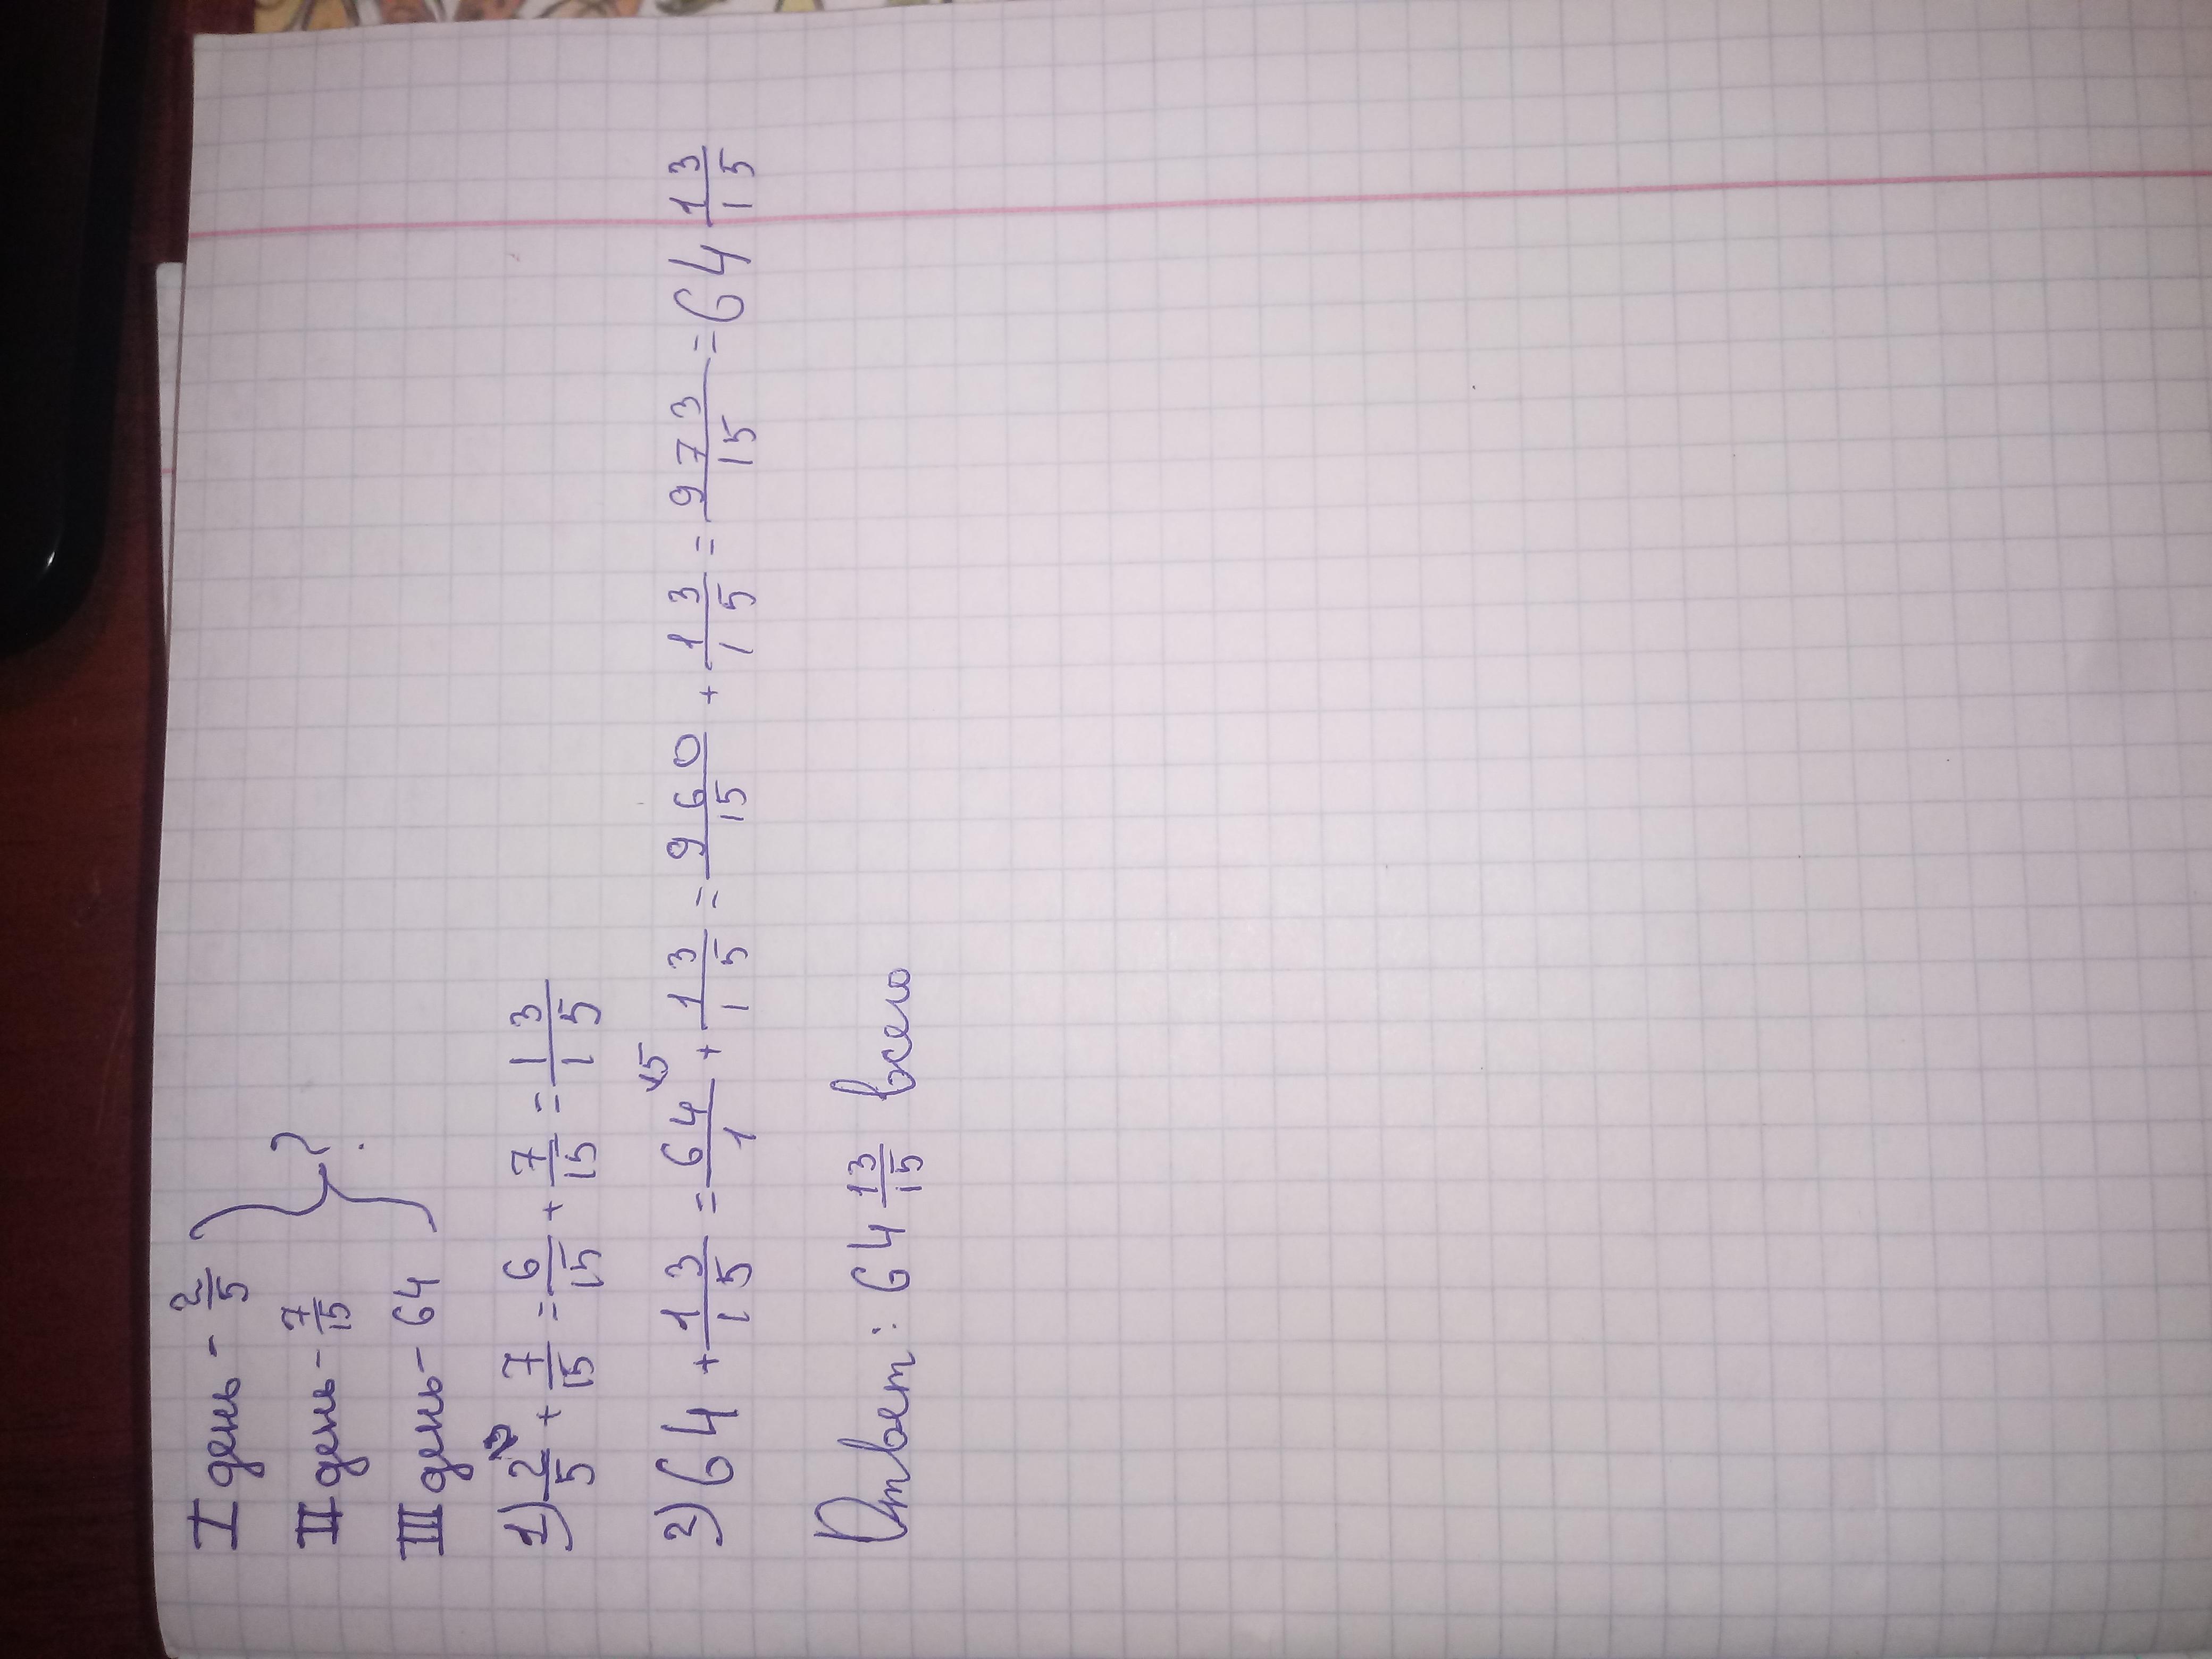 I день - 2/5 } ?
II день - 7/15
III день - 64
1) 2/5 ³ + 7/15 = 6/15 + 7/15 = 13/15
2) 64 + 13/15 = 64/1 ¹⁵ + 13/15 = 960/15 + 13/15 = 973/15 = 64 13/15
Ответ: 64 13/15 всего